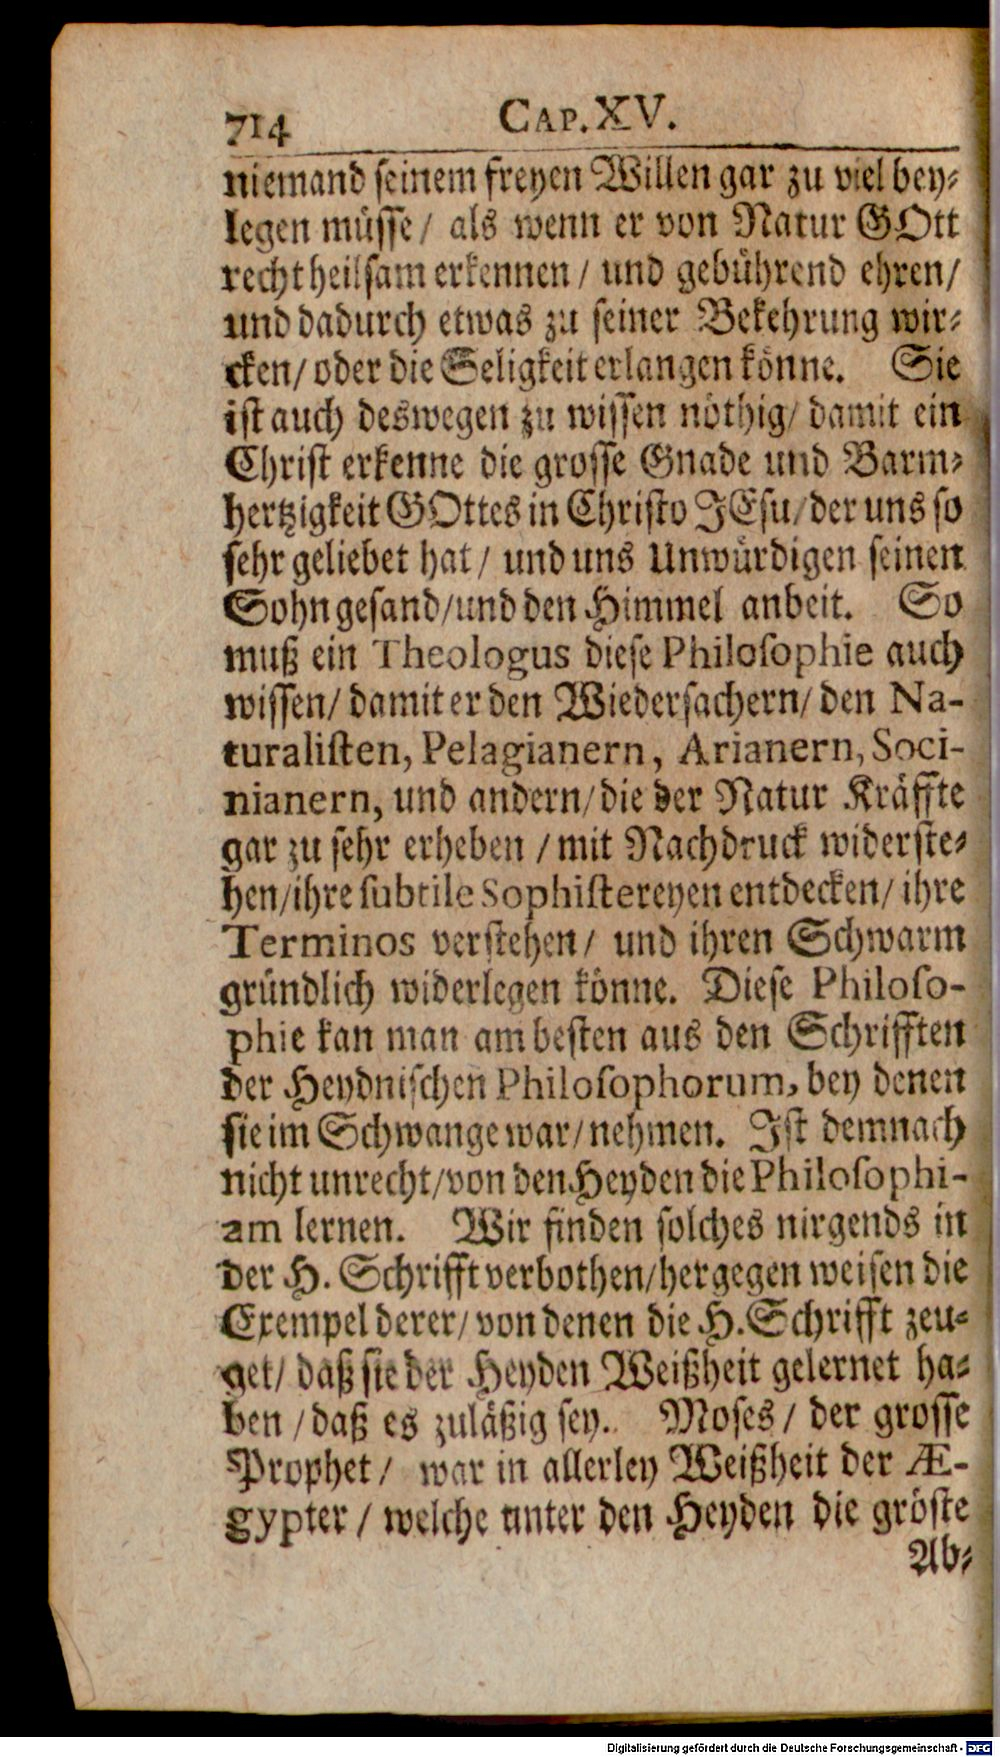 714 CAP. XV.
niemand seinem freyen Willen gar zu viel bey-
legen müsse/ als wenn er von Natur GOtt
recht heilsam erkennen/ und gebührend ehren/
und dadurch etwas zu seiner Bekehrung wir-
cken/ oder die Seligkeit erlangen könne. Sie
ist auch deswegen zu wissen nöthig/ damit ein
Christ erkenne die grosse Gnade und Barm-
hertzigkeit GOttes in Christo JEsu/ der uns so
sehr geliebet hat/ und uns Unwürdigen seinen
Sohn gesand/ und den Himmel anbeit. So
muß ein Theologus diese Philosophie auch
wissen/ damit er den Wiedersachern/ den Na-
turalisten, Pelagianern, Arianern, Soci-
nianern, und andern/ die der Natur Kräffte
gar zu sehr erheben / mit Nachdruck widerste-
hen/ ihre subtile Sophistereyen entdecken/ ihre
Terminos verstehen/ und ihren Schwarm
gründlich widerlegen könne. Diese Philoso-
phie kan man am besten aus den Schrifften
der Heydnischen Philosophorum, bey denen
sie im Schwange war/ nehmen. Ist demnach
nicht unrecht/ von den Heyden die Philosophi-
am lernen. Wir finden solches nirgends in
der H. Schrifft verbothen/ hergegen weisen die
Exempel derer/ von denen die H. Schrifft zeu-
get/ daß sie der Heyden Weißheit gelernet ha-
ben / daß es zuläßig sey. Moses / der grosse
Prophet/ war in allerley Weißheit der Æ-
gypter / welche unter den Heyden die gröste
Ab-
Digitalisierung gefördert durch die Deutsche Forschungsgemeinschaft - DFG